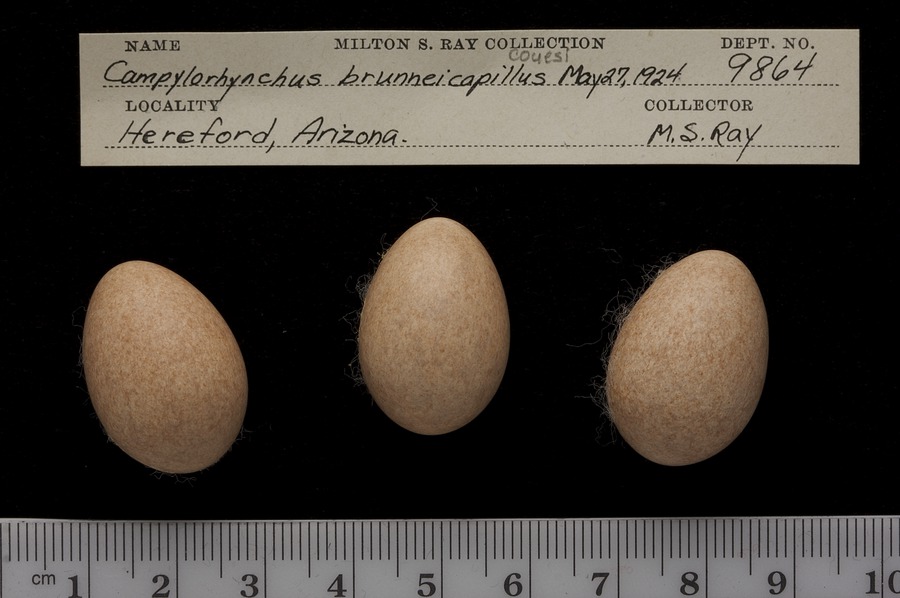 NAME MILTON S. RAY COLLECTION DEPT. NO.
couesi
Campylorhynchus brunneicapillus May 27, 1924 9864
LOCALITY COLLECTOR
Hereford, Arizona. M.S. Ray
cm 1 2 3 4 5 6 7 8 9 10